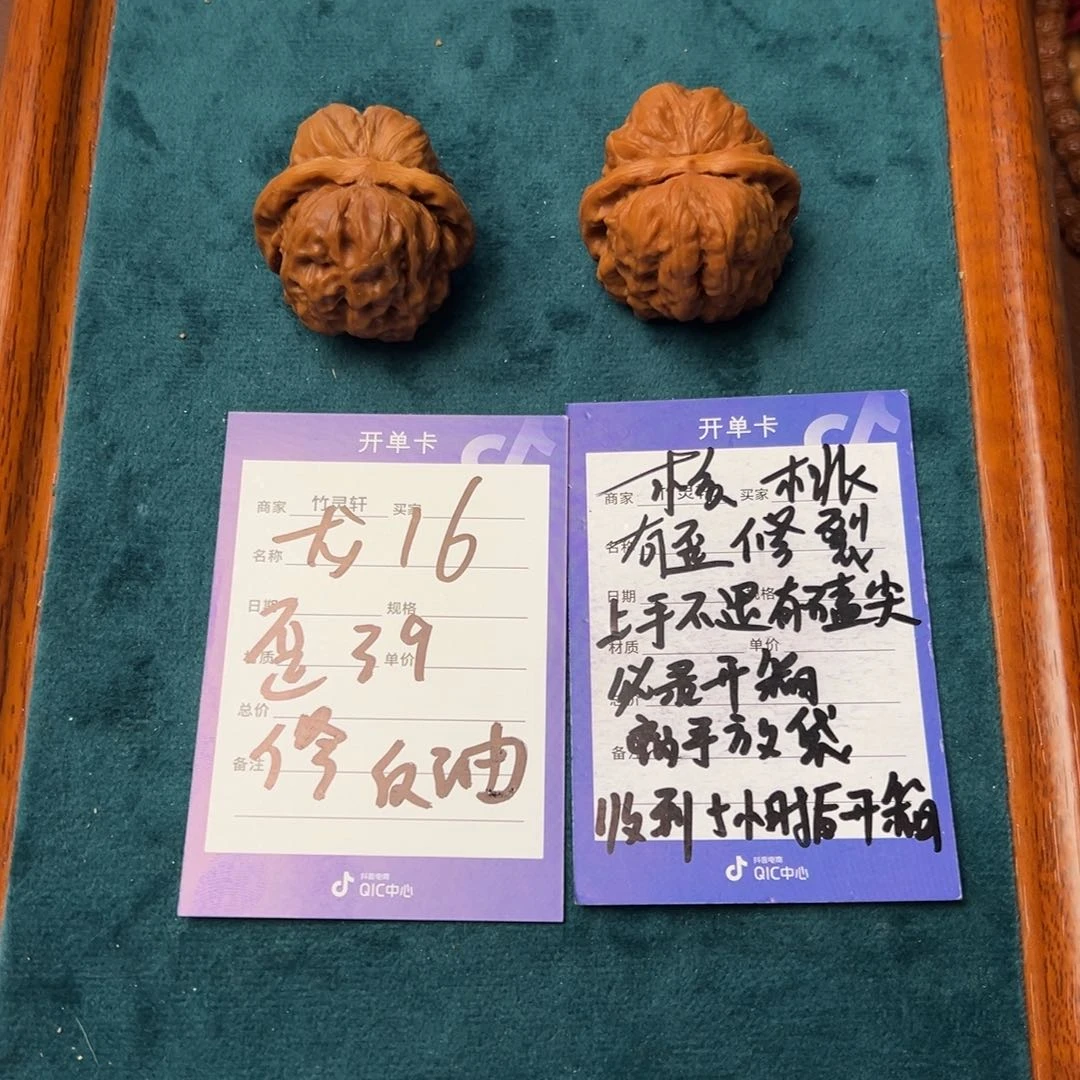 开单卡
商家 竹灵轩 买家
尤 16
名称
日期 规格
歪 39
材质 单价
总价
备注
修 反油
抖音电商
QIC中心
开单卡
商家 买家
核 桃
名称
有歪 修 裂
日期 规格
上手不退有磕尖
材质 单价
必录开箱
总价
放袋
备注
收到 小时后开箱
抖音电商
QIC中心